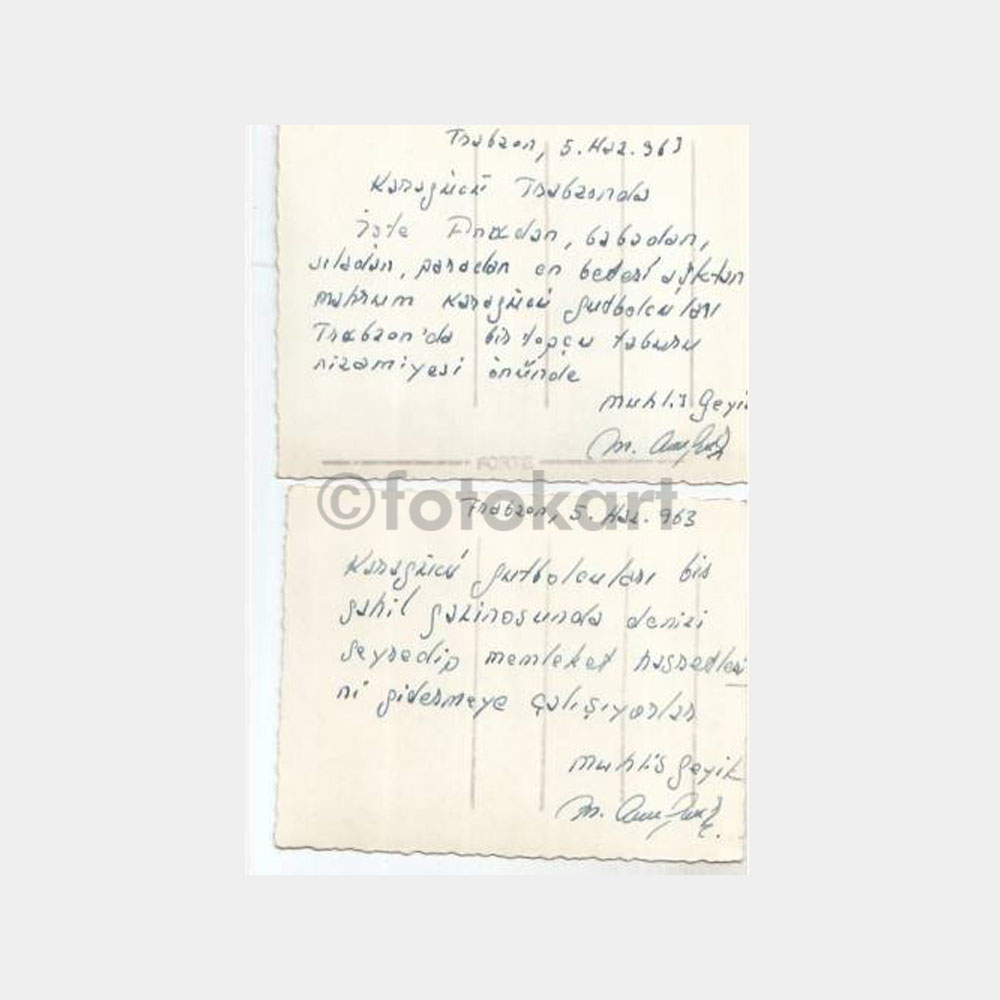 Trabzon, 5. Haz. 963
Karagücü Trabzonda
İşte Anadan, babadan,
sıladan, paradan en beteri aşktan
mahrum Karagücü futbolcuları
Trabzon'da bir topçu taburu
nizamiyesi önünde
Muhlis Geyik
M.
FORTE
©fotokart
Trabzon, 5. Haz. 963
Karagücü futbolcuları bir
sahil gazinosunda denizi
seyredip memleket hasretleri
ni gidermeye çalışıyorlar
Muhlis Geyik
M.